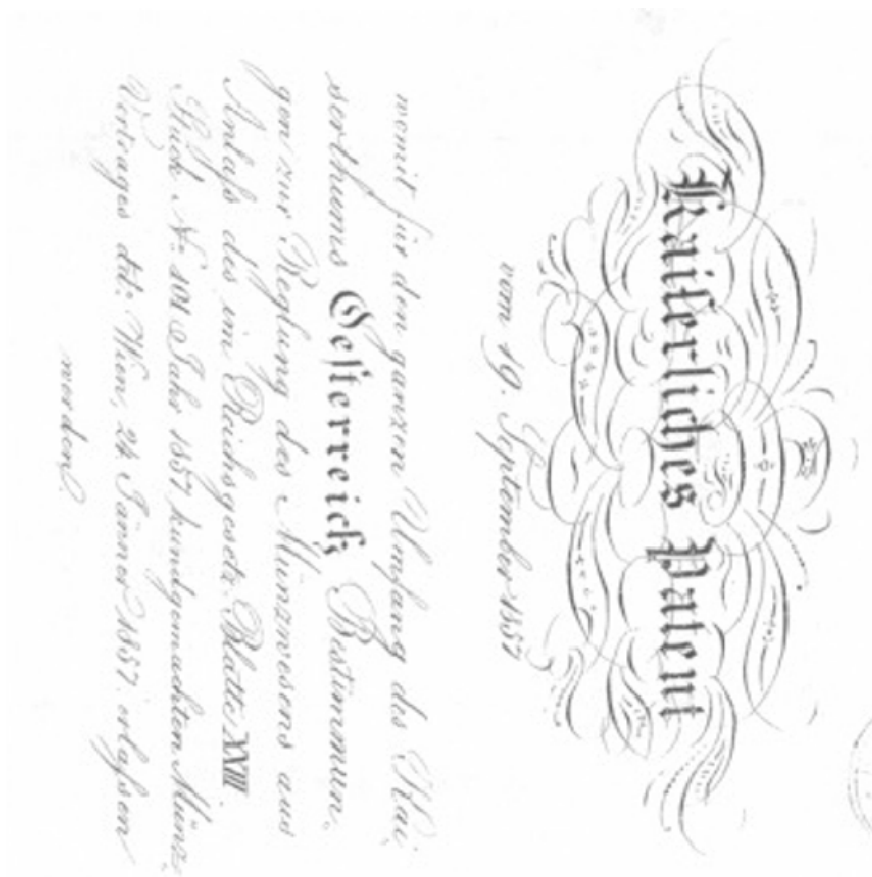 Kaiserliches Patent
vom 19. September 1857
womit für den ganzen Umfang des Kai
serthums Oesterreich, Bestimmun,
gen zur Reglung des Münzwesens aus
Anlaß des im Reichsgesetz-Blatte XXIII
Stück, No 101 Jahr 1857 kundgemachten Münz,
Vertrages dtd: Wien, 24 Jänner 1857. erlaßen
werden.